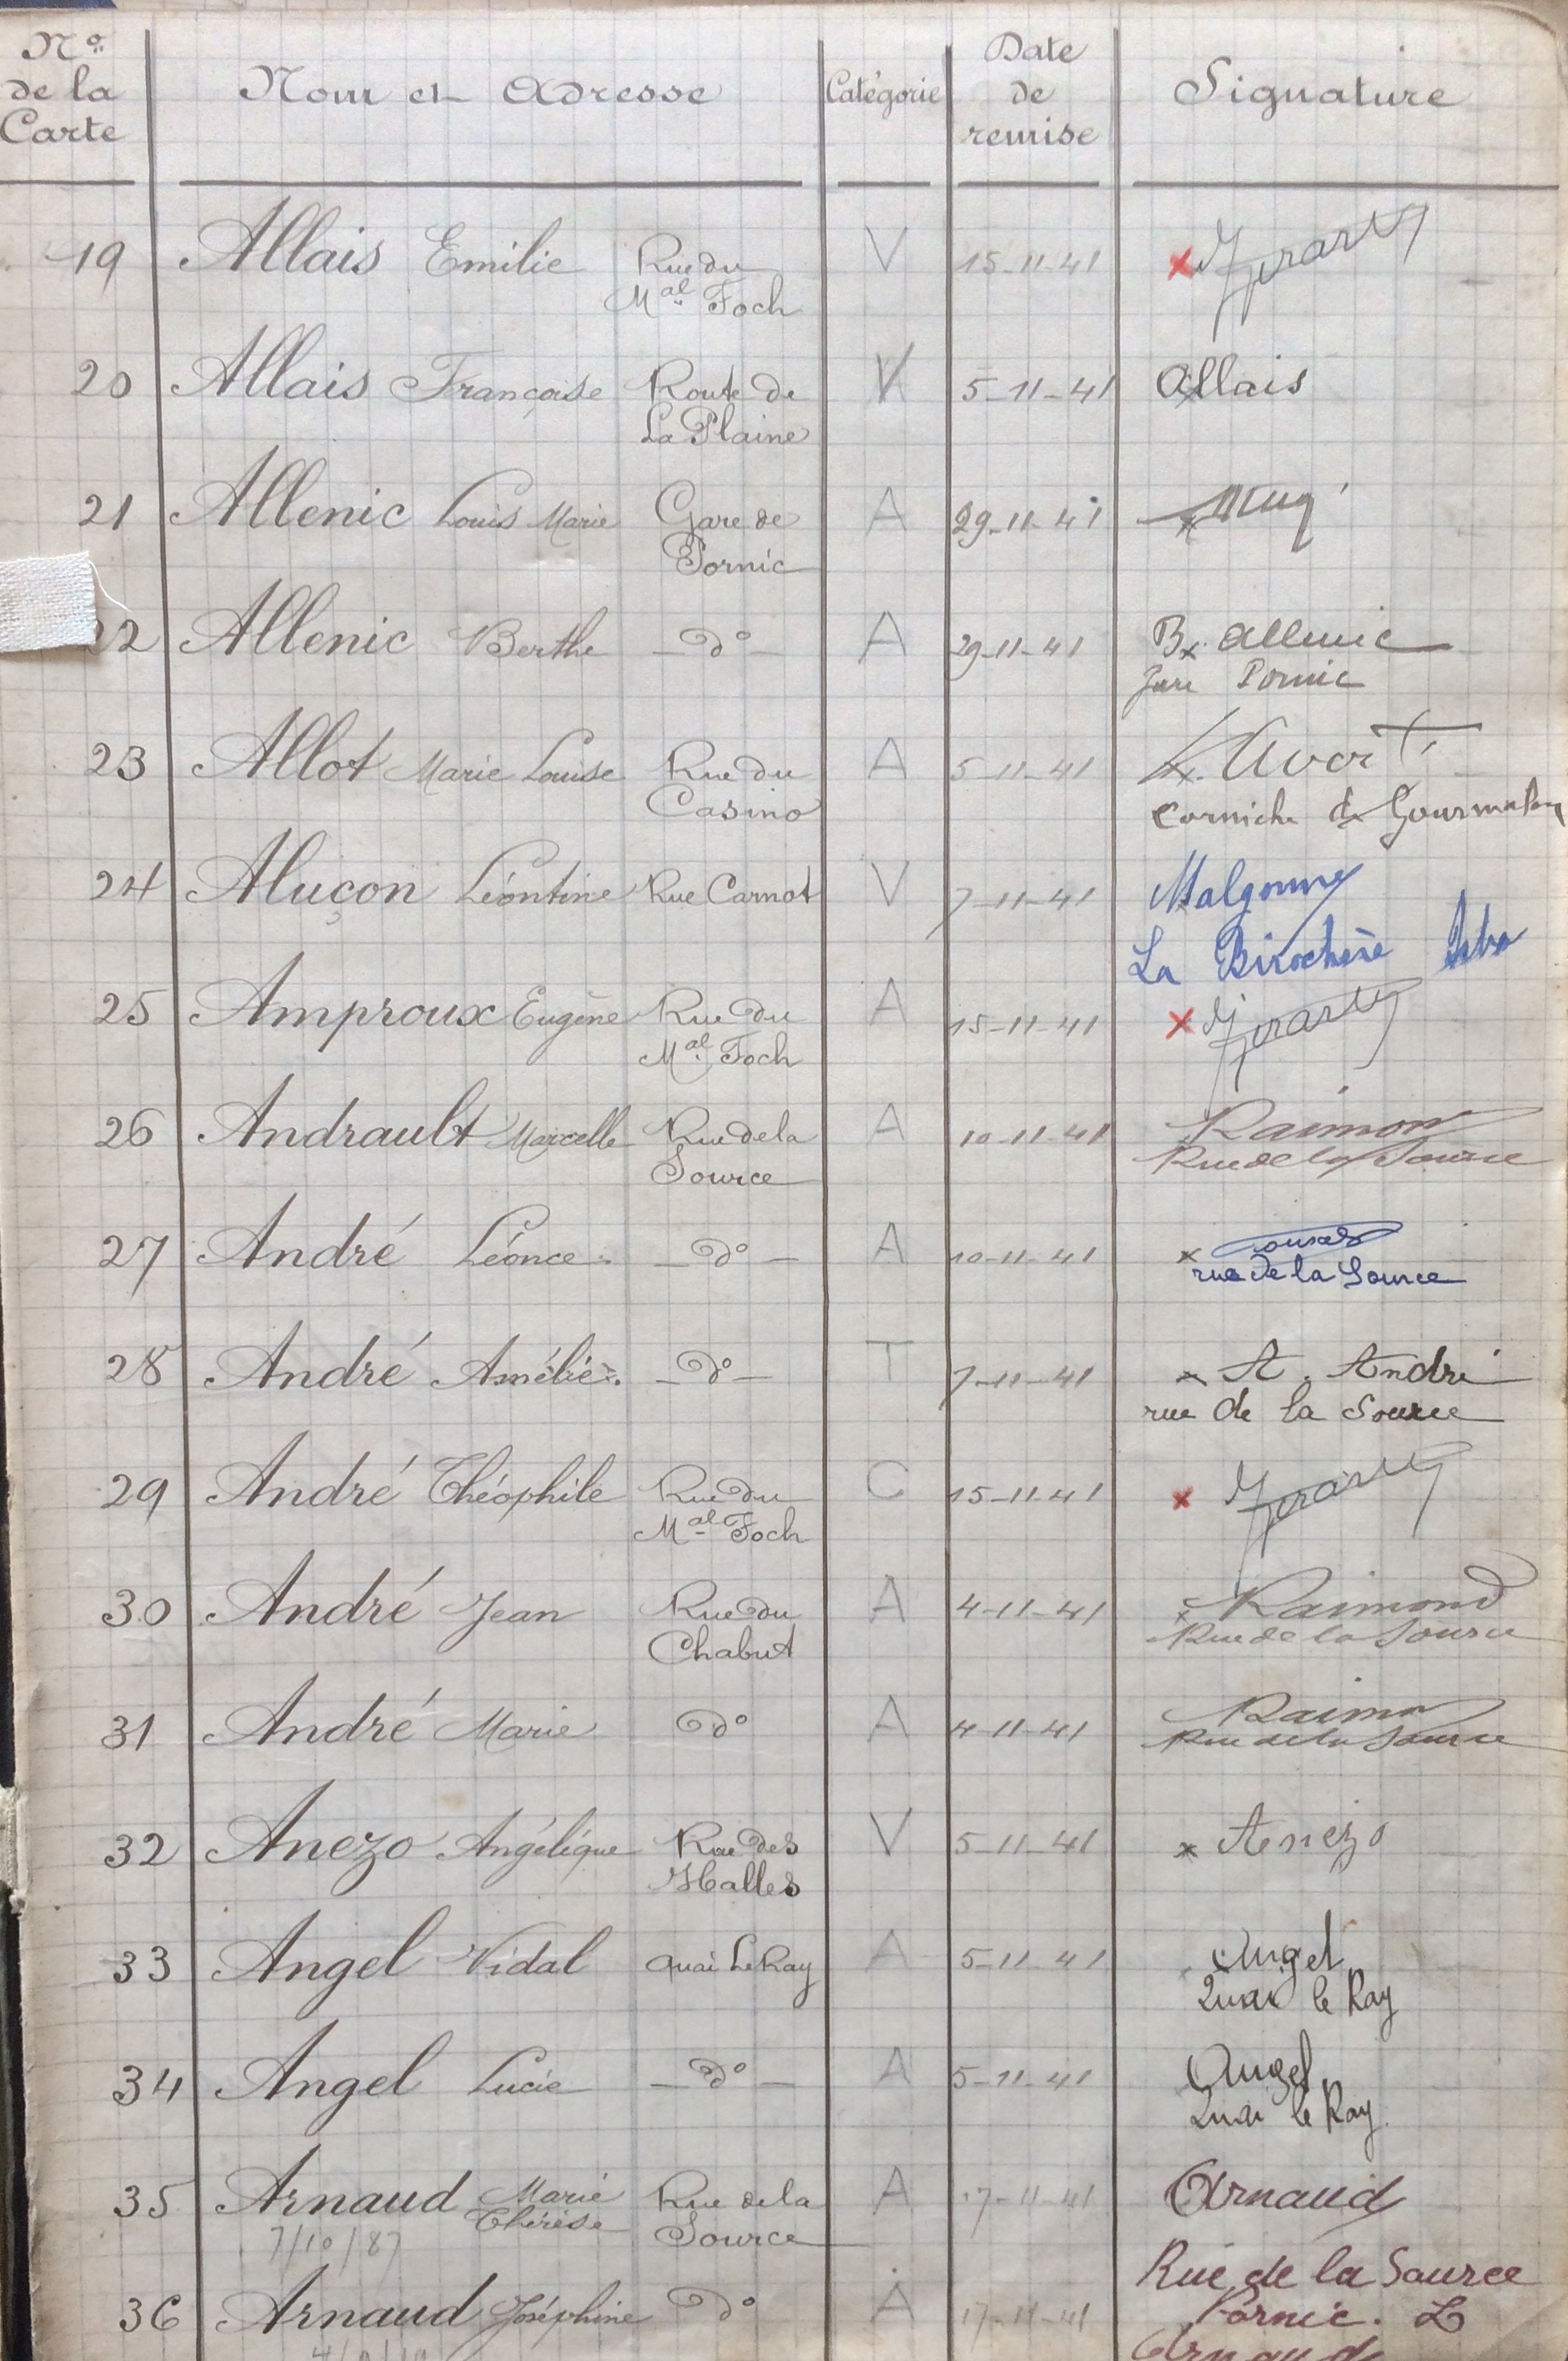 Nos de la Carte Nom et Adresse Catégorie Date de remise Signature
19 Allais Emilie Rue du Mal Foch V 15-11-41 x
20 Allais Françoise Route de La Plaine V 5-11-41 Allais
21 Allenic Louis Marie Gare de Pornic A 29-11-41 x
22 Allenic Berthe -do- A 29-11-41 B. Allenic
Gare Pornic
23 Allot Marie Louise Rue du Casino A 5-11-41
Corniche de Gourmalon
24 Aluçon Léontine Rue Carnot V 7-11-41
La Birochère
25 Amproux Eugène Rue du Mal Foch A 15-11-41 x
26 Andrault Marcelle Rue de la Source A 10-11-41 Raimond
Rue de la Source
27 André Léonce -do- A 10-11-41 x
rue de la Source
28 André Amélie -do- T 7-11-41 x A. André
rue de la Source
29 André Théophile Rue du Mal Foch C 15-11-41 x
30 André Jean Rue du Chabut A 4-11-41 x Raimond
Rue de la Source
31 André Marie do A 4-11-41 Raimond
Rue de la Source
32 Anezo Angélique Rue des Halles V 5-11-41 x Anezo
33 Angel Vidal Quai Le Ray A 5-11-41 Angel
Quai le Ray
34 Angel Lucie -do- A 5-11-41 Angel
Quai le Ray
35 Arnaud Marie Thérèse Rue de la Source A 17-11-41 Arnaud
7/10/87
Rue de la Source
Pornic.
36 Arnaud Joséphine do A 17-11-41 Arnaud